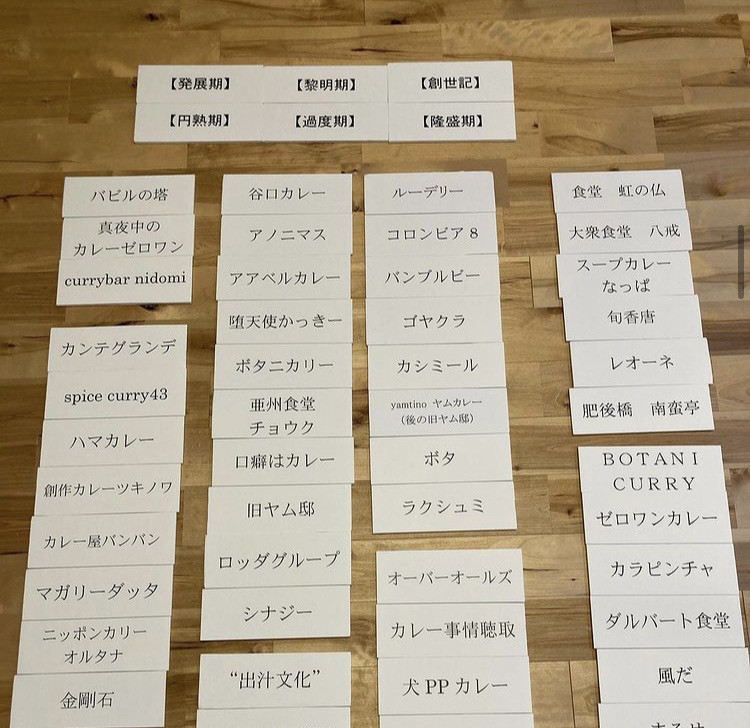 【発展期】
【黎明期】
【創世記】
【円熟期】
【過度期】
【隆盛期】
バビルの塔
真夜中の
カレーゼロワン
currybar nidomi
カンテグランデ
spice curry43
ハマカレー
創作カレーツキノワ
カレー屋バンバン
マガリーダッタ
ニッポンカリー
オルタナ
金剛石
谷口カレー
アノニマス
アアベルカレー
堕天使かっきー
ボタニカリー
亜州食堂
チョウク
口癖はカレー
旧ヤム邸
ロッダグループ
シナジー
“出汁文化”
ルーデリー
コロンビア８
バンブルビー
ゴヤクラ
カシミール
yamtino ヤムカレー
（後の旧ヤム邸）
ボタ
ラクシュミ
オーバーオールズ
カレー事情聴取
犬 PP カレー
食堂　虹の仏
大衆食堂　八戒
スープカレー
なっぱ
旬香唐
レオーネ
肥後橋　南蛮亭
ＢＯＴＡＮＩ
ＣＵＲＲＹ
ゼロワンカレー
カラピンチャ
ダルバート食堂
風だ